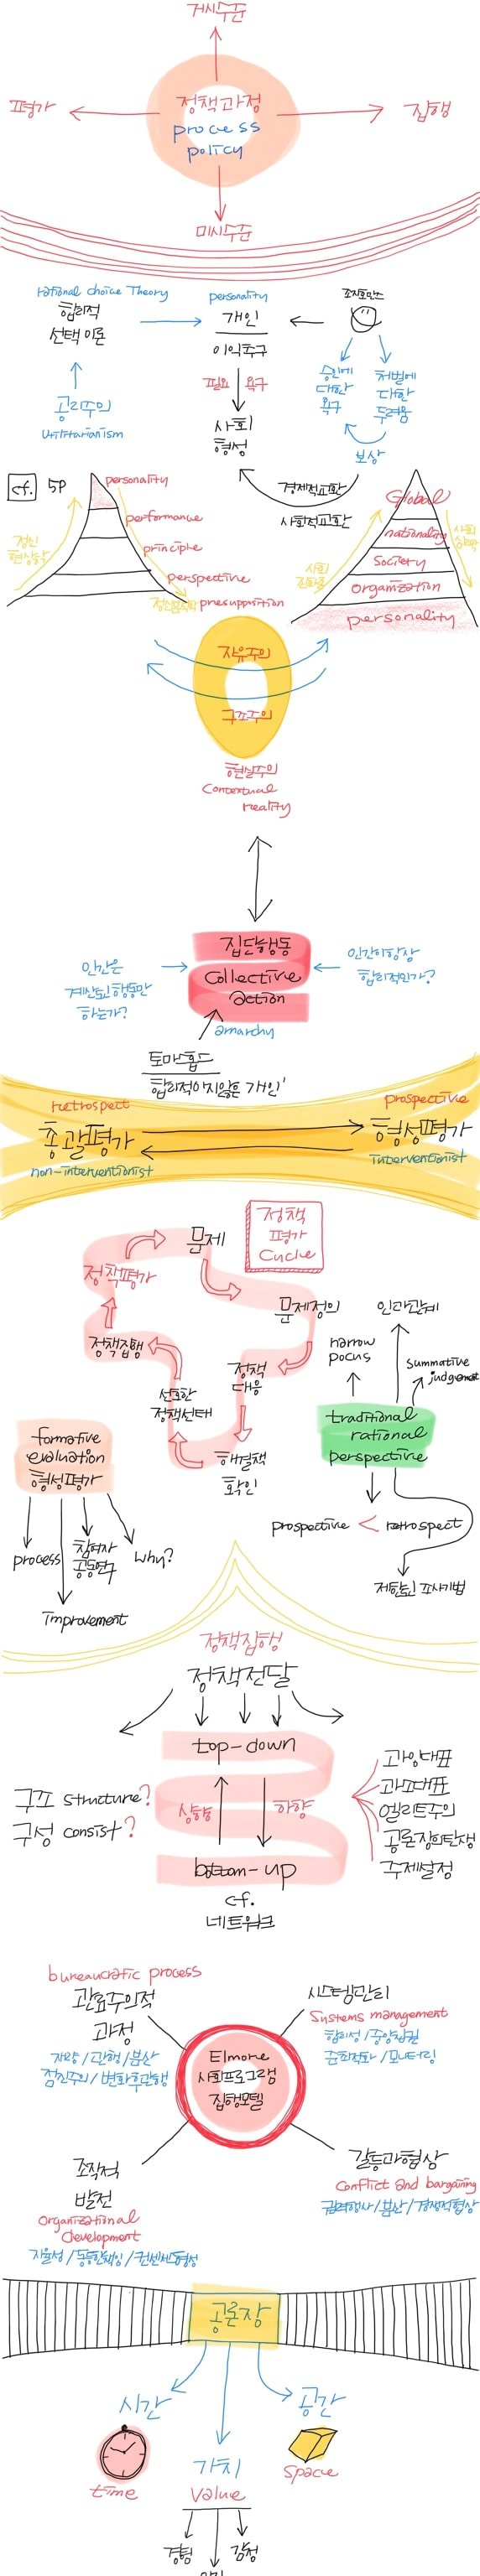 거시수준
평가
정책과정
process
policy
집행
미시수준
rational choice Theory
합리적
선택 이론
공리주의
Utilitarianism
personality
개인
이익추구
필요 욕구
사회
형성
조지호만스
승인에
대한
욕구
처벌에
대한
두려움
보상
경제적교환
사회적교환
cf. 5p
personality
performance
principle
perspective
presupposition
정신
현상학
Global
nationality
Society
organization
personality
자유주의
구조주의
현실주의
Contextual
reality
집단행동
Collective
action
인간은
계산된 행동만
하는가?
인간이 항상
합리적인가?
anarchy
토마홉스
합리적이지않은 개인'
retrospect
총괄평가
non-interventionist
prospective
형성평가
interventionist
정책
평가
Cycle
문제
정책평가
문제정의
정책집행
정책
대응
선호한
정책선택
해결책
확인
인과관계
narrow
pocus
summative
judgement
traditional
rational
perspective
prospective < retrospect
제한된 조사기법
formative
evaluation
형성평가
process
참여자
공동연구
why?
improvement
정책집행
정책전달
top-down
구조 structure?
구성 consist?
상향
하향
bottom-up
cf.
네트워크
과잉대표
과표대표
엘리트주의
공론장의탄생
주제설정
bureaucratic process
관료주의적
과정
재량/관행/분산
점진주의/변화후관행
시스템관리
Systems management
합리성/중앙집권
준최적화/모니터링
Elmore
사회프로그램
집행모델
조직적
발전
organizational
development
자율성/동등한책임/컨센서스형성
갈등과협상
Conflict and bargaining
권력행사/분산/경쟁적협상
공론장
시간
time
가치
Value
공간
space
경험
감정